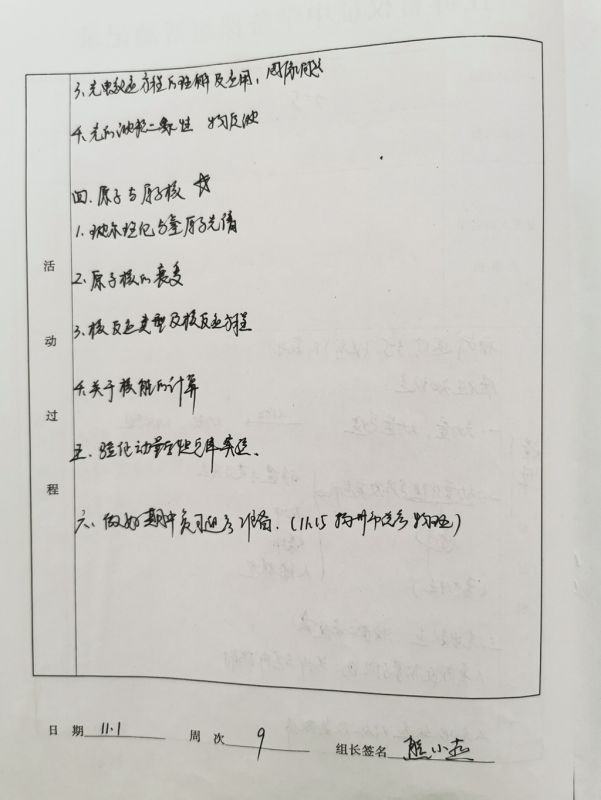 3、光电效应方程的理解及应用,图像问题
4、光的波粒二象性 物质波
四、原子与原子核 ☆
1、玻尔理论与氢原子光谱
2、原子核的衰变
3、核反应类型及核反应方程
4、关于核能的计算
五、验证动量守恒定律实验、
六、做好期中考可迎考准备、(11.15 统考物理)
活动过程
日 期 11.1 周 次 9 组长签名 熊小